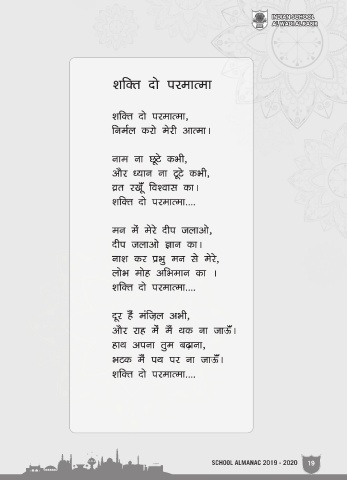 INDIAN SCHOOL
AL WADI AL KABIR
शक्ति दो परमात्मा
शक्ति दो परमात्मा,
निर्मल करो मेरी आत्मा।
नाम ना छूटे कभी,
और ध्यान ना टूटे कभी,
व्रत रखूँ विश्वास का।
शक्ति दो परमात्मा....
मन में मेरे दीप जलाओ,
दीप जलाओ ज्ञान का।
नाश कर प्रभु मन से मेरे,
लोभ मोह अभिमान का ।
शक्ति दो परमात्मा....
दूर हैं मंज़िल अभी,
और राह में मैं थक ना जाऊँ।
हाथ अपना तुम बढ़ाना,
भटक मैं पथ पर ना जाऊँ।
शक्ति दो परमात्मा....
SCHOOL ALMANAC 2019 - 2020 19